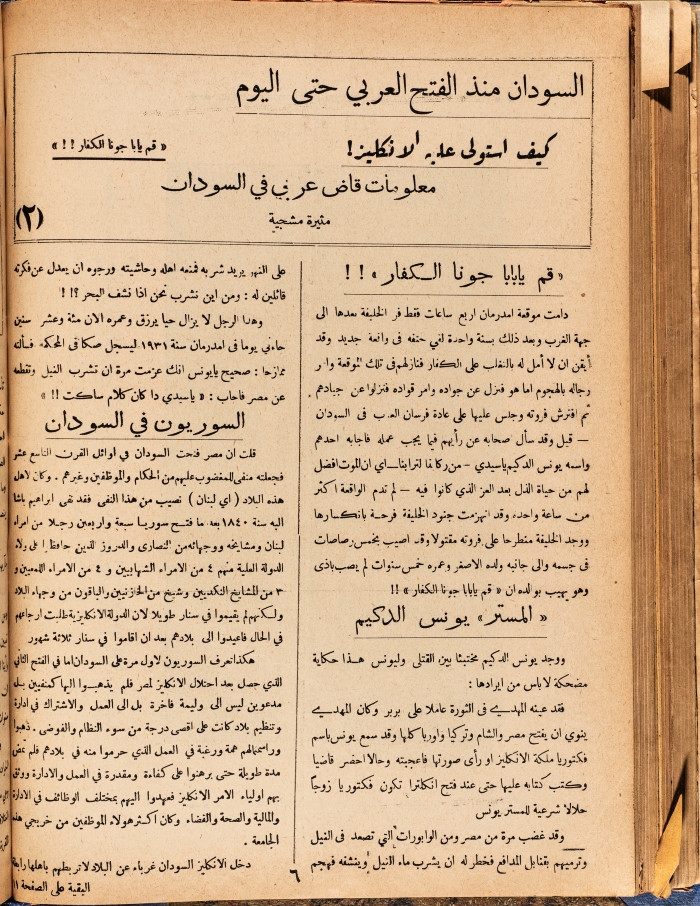 السودان منذ الفتح العربي حتى اليوم
كيف استولى عليه الانكليز!
« قم يابا جونا الكفار !! »
معلومات قاض عربي في السودان
مثيرة مشجية
(٢)
« قم يابابا جونا الكفار » !!
دامت موقعة امدرمان اربع ساعات فقط فر الخليفة بعدها الى
جهة الغرب وبعد ذلك بسنة واحدة لقي حتفه في واقعة جديد وقد
أيقن ان لا أمل له بالتغلب على الكفار فنازلهم في تلك الموقعة وامر
رجاله بالهجوم اما هو فنزل عن جواده وامر قواده فنزلوا عن جيادهم
ثم افترش فروته وجلس عليها على عادة فرسان العرب في السودان
— قيل وقد سأل صحابه عن رأيهم فيما يجب عمله فاجابه احدهم
واسمه يونس الدكيم ياسيدي – من ركانا لترابنا – اي ان الموت افضل
لهم من حياة الذل بعد العز الذي كانوا فيه — لم تدم الواقعة اكثر
من ساعة واحده وقد انهزمت جنود الخليفة فرحة بانكسارها
ووجد الخليفة منطرحا على فروته مقتولا وقد اصيب بخمس رصاصات
في جسمه والى جانبه ولده الاصغر وعمره خمس سنوات لم يصب باذى
وهو يهيب بوالده ان « قم يابابا جونا الكفار » !!
« المستر » يونس الدكيم
ووجد يونس الدكيم مختبئا بين القتلى وليونس هذا حكاية
مضحكة لاباس من ايرادها :
فقد عينه المهدي في الثورة عاملا على بربر وكان المهدي
ينوي ان يفتح مصر والشام وتركيا واوربا كلها وقد سمع يونس باسم
فكتوريا ملكة الانكليز او رأى صورتها فاعجبته وحالا احضر قاضيا
وكتب كتابه عليها حتى عند فتح انكلترا تكون فكتوريا زوجاً
حلالا شرعية للمستر يونس
وقد غضب مرة من مصر ومن الوابورات التي تصعد في النيل
وترميهم بقنابل المدافع فخطر له ان يشرب ماء النيل وينشفه فهجم
على النهر يريد شربه فمنعه اهله وحاشيته ورجوه ان يعدل عن فكرته
قائلين له : ومن اين نشرب نحن اذا نشف البحر ؟! !
وهذا الرجل لا يزال حيا يرزق وعمره الان مئة وعشر سنين
جاءني يوما في امدرمان سنة ١٩٣١ ليسجل صكا في المحكمة فسألته
ممازحا : صحيح يايونس انك عزمت مرة ان تشرب النيل وتقطعه
عن مصر فاجاب : « ياسيدي دا كان كلام ساكت !! »
السوريون في السودان
قلت ان مصر فتحت السودان في اوائل القرن التاسع عشر
فجعلته منفى للمغضوب عليهم من الحكام والموظفين وغيرهم . وكان لاهل
هذه البلاد ( اي لبنان ) نصيب من هذا النفى فقد نفى ابراهيم باشا
اليه سنة ١٨٤٠ بعد ما فتح سوريا سبعة واربعين رجلا من امراء
لبنان ومشايخه ووجهائه من النصارى والدروز الذين حافظوا على ولاء
الدولة العلية منهم ٤ من الامراء الشهابيين و ٤ من الامراء اللمعيين و
٣ من المشايخ النكديين وشيخ من الخازنيين والباقون من وجهاء البلاد
ولكنهم لم يقيموا في سنار طويلا لان الدولة الانكليزية طلبت ارجاعهم
في الحال فاعيدوا الى بلادهم بعد ان اقاموا في سنار ثلاثة شهور
هكذا تعرف السوريون لاول مرة على السودان اما في الفتح الثاني
الذي حصل بعد احتلال الانكليز لمصر فلم يذهبوا اليها كمنفيين بل
مدعوين ليس الى وليمة فاخرة بل الى العمل والاشتراك في ادارة
وتنظيم بلاد كانت على اقصى درجة من سوء النظام والفوضى . ذهبوا
ورأسمالهم همة ورغبة في العمل الذي حرموا منه في بلادهم فلم تمض
مدة طويلة حتى برهنوا على كفاءة ومقدرة في العمل والادارة ووثق
بهم اولياء الامر الانكليز فعهدوا اليهم بمختلف الوظائف في الادارة
والمالية والصحة والقضاء وكان اكثر هولاء الموظفين من خريجي هذه
الجامعة .
دخل الانكليز السودان غرباء عن البلاد لاتربطهم باهلها رابطة
البقية على الصفحة ١١
٦